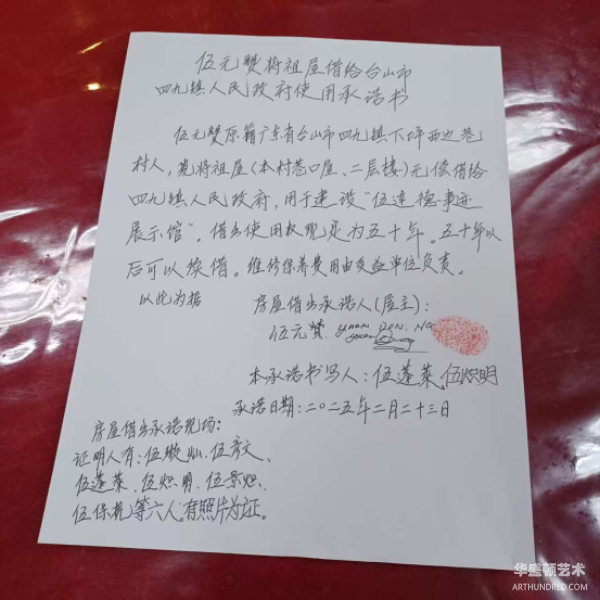 伍元赞将祖屋借给台山市
四九镇人民政府使用承诺书
伍元赞原籍广东省台山市四九镇下坪西边巷
村人,现将祖屋(本村巷口屋、二层楼)无偿借给
四九镇人民政府,用于建设“伍连德事迹
展示馆”。借出使用权规定为五十年。五十年以
后可以续借。维修保养费用由受益单位负责。
以此为据
房屋借出承诺人(屋主):
伍元赞. YUAN DEN. NG
本承诺书写人:伍蓬莱、伍炽明
承诺日期:二〇二五年二月二十三日
房屋借出承诺现场:
证明人有:伍璇灿、伍彦文、
伍蓬莱、伍炽明、伍景炽、
伍保乾等六人。有照片为证。
华盛顿艺术
ARTHUNDRED.COM